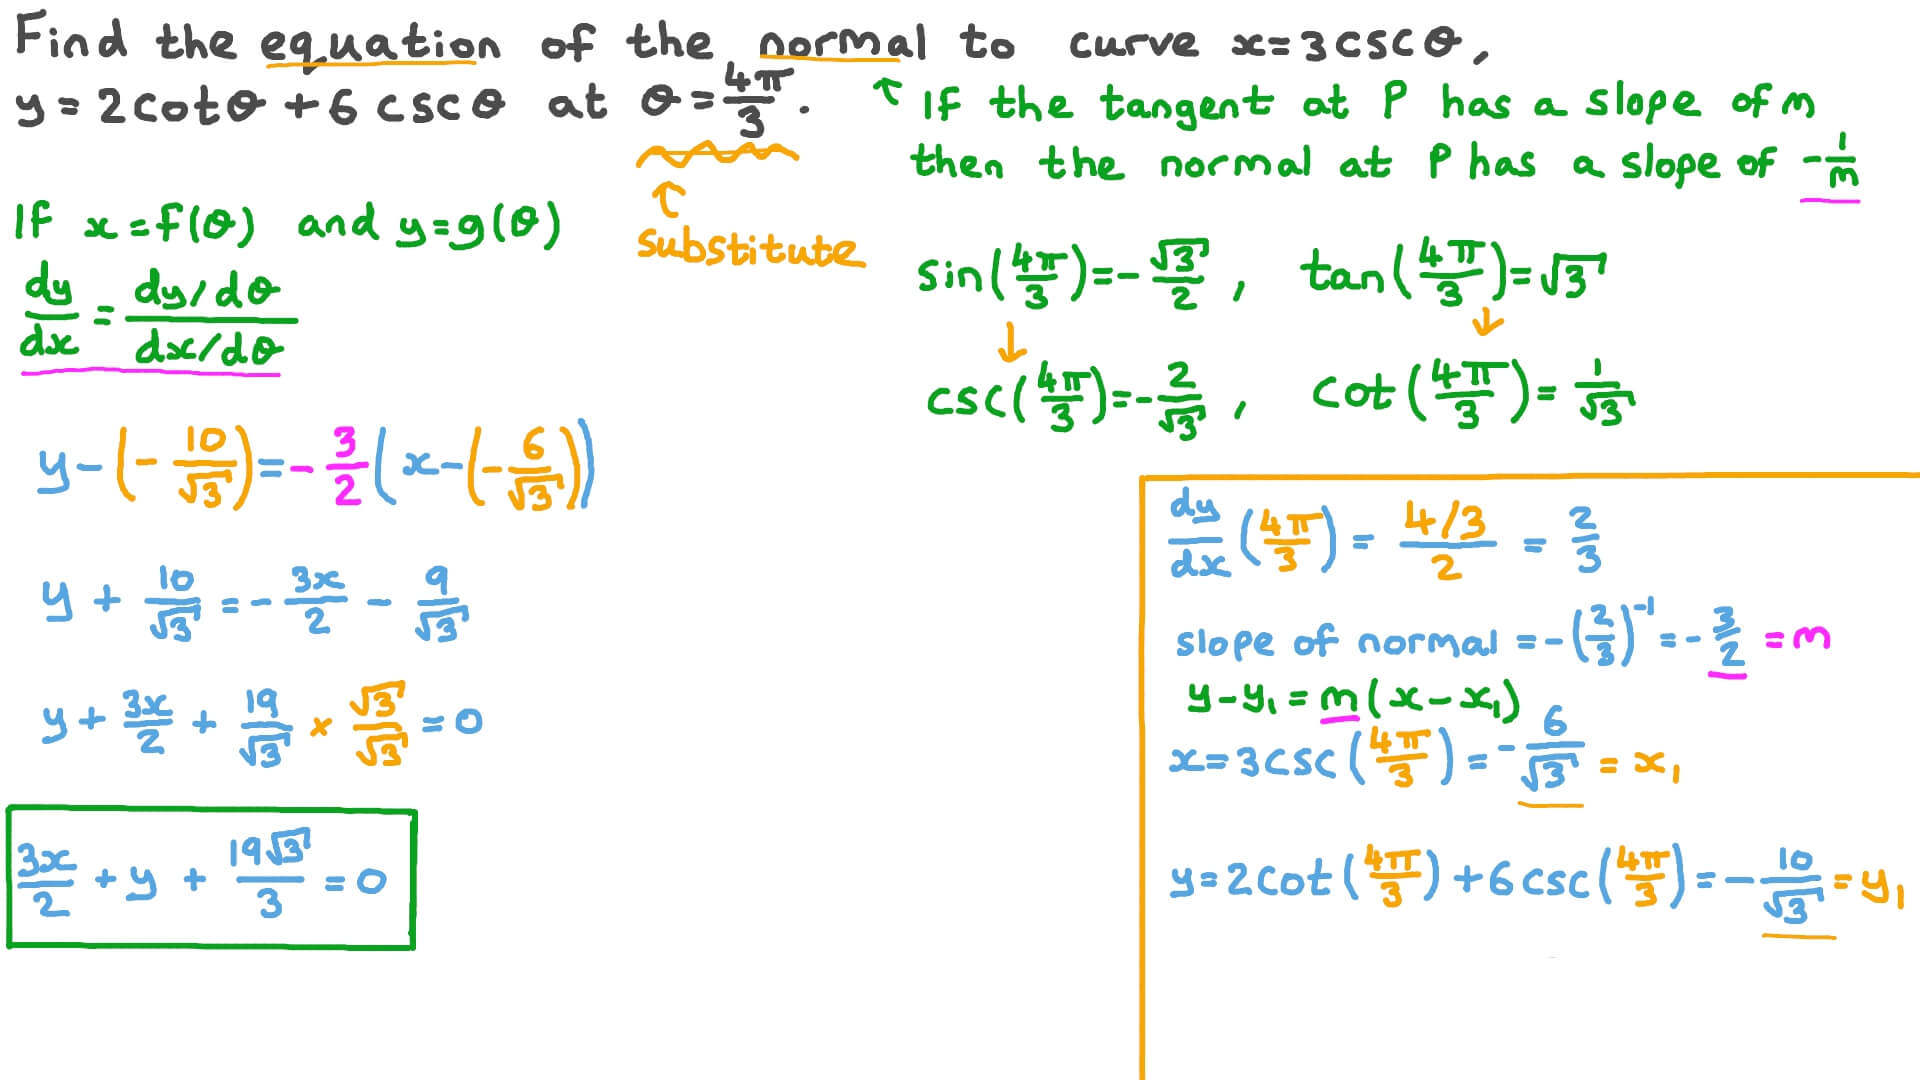 Find the equation of the normal to curve x=3cscθ,
y=2cotθ+6cscθ at θ=4π/3.
If the tangent at P has a slope of m
then the normal at P has a slope of -1/m
substitute
If x=f(θ) and y=g(θ)
dy/dx = (dy/dθ)/(dx/dθ)
sin(4π/3)=-√3/2, tan(4π/3)=√3
csc(4π/3)=-2/√3, cot(4π/3)=1/√3
y-(-10/√3)=-3/2(x-(-6/√3))
y+10/√3=-3x/2-9/√3
y+3x/2+19/√3×√3/√3=0
3x/2+y+19√3/3=0
dy/dx(4π/3)=(4/3)/2=2/3
slope of normal=-(2/3)^-1=-3/2=m
y-y₁=m(x-x₁)
x=3csc(4π/3)=-6/√3=x₁
y=2cot(4π/3)+6csc(4π/3)=-10/√3=y₁